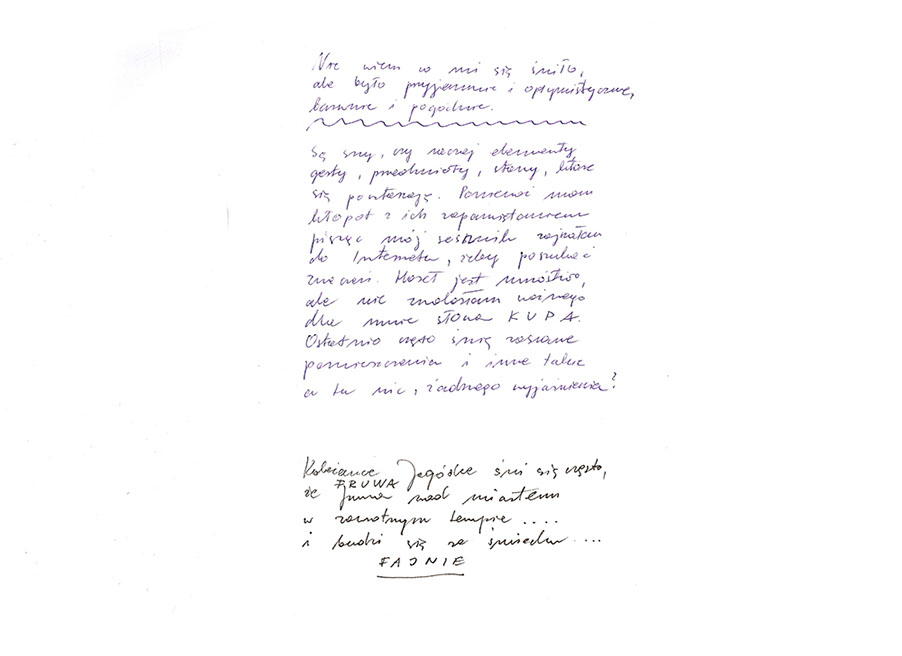 Nie wiem co mi się śniło,
ale było przyjemnie i optymistycznie,
barwnie i pogodnie.
Są sny, czy raczej elementy
gesty, przedmioty, stany, które
się powtarzają. Ponieważ mam
kłopot z ich zapamiętaniem
pisząc mój sennik zajrzałam
do Internetu, żeby poszukać
znaczeń. Haseł jest mnóstwo,
ale nie znalazłam ważnego
dla mnie słowa KUPA.
Ostatnio często śnią zasrane
pomieszczenia i inne takie
a tu nic, żadnego wyjaśnienia?
Koleżance Jagódce śni się często,
FRUWA
że fruwa nad miastem
w zawrotnym tempie ....
i budzi się ze śmiechu ....
FAJNIE